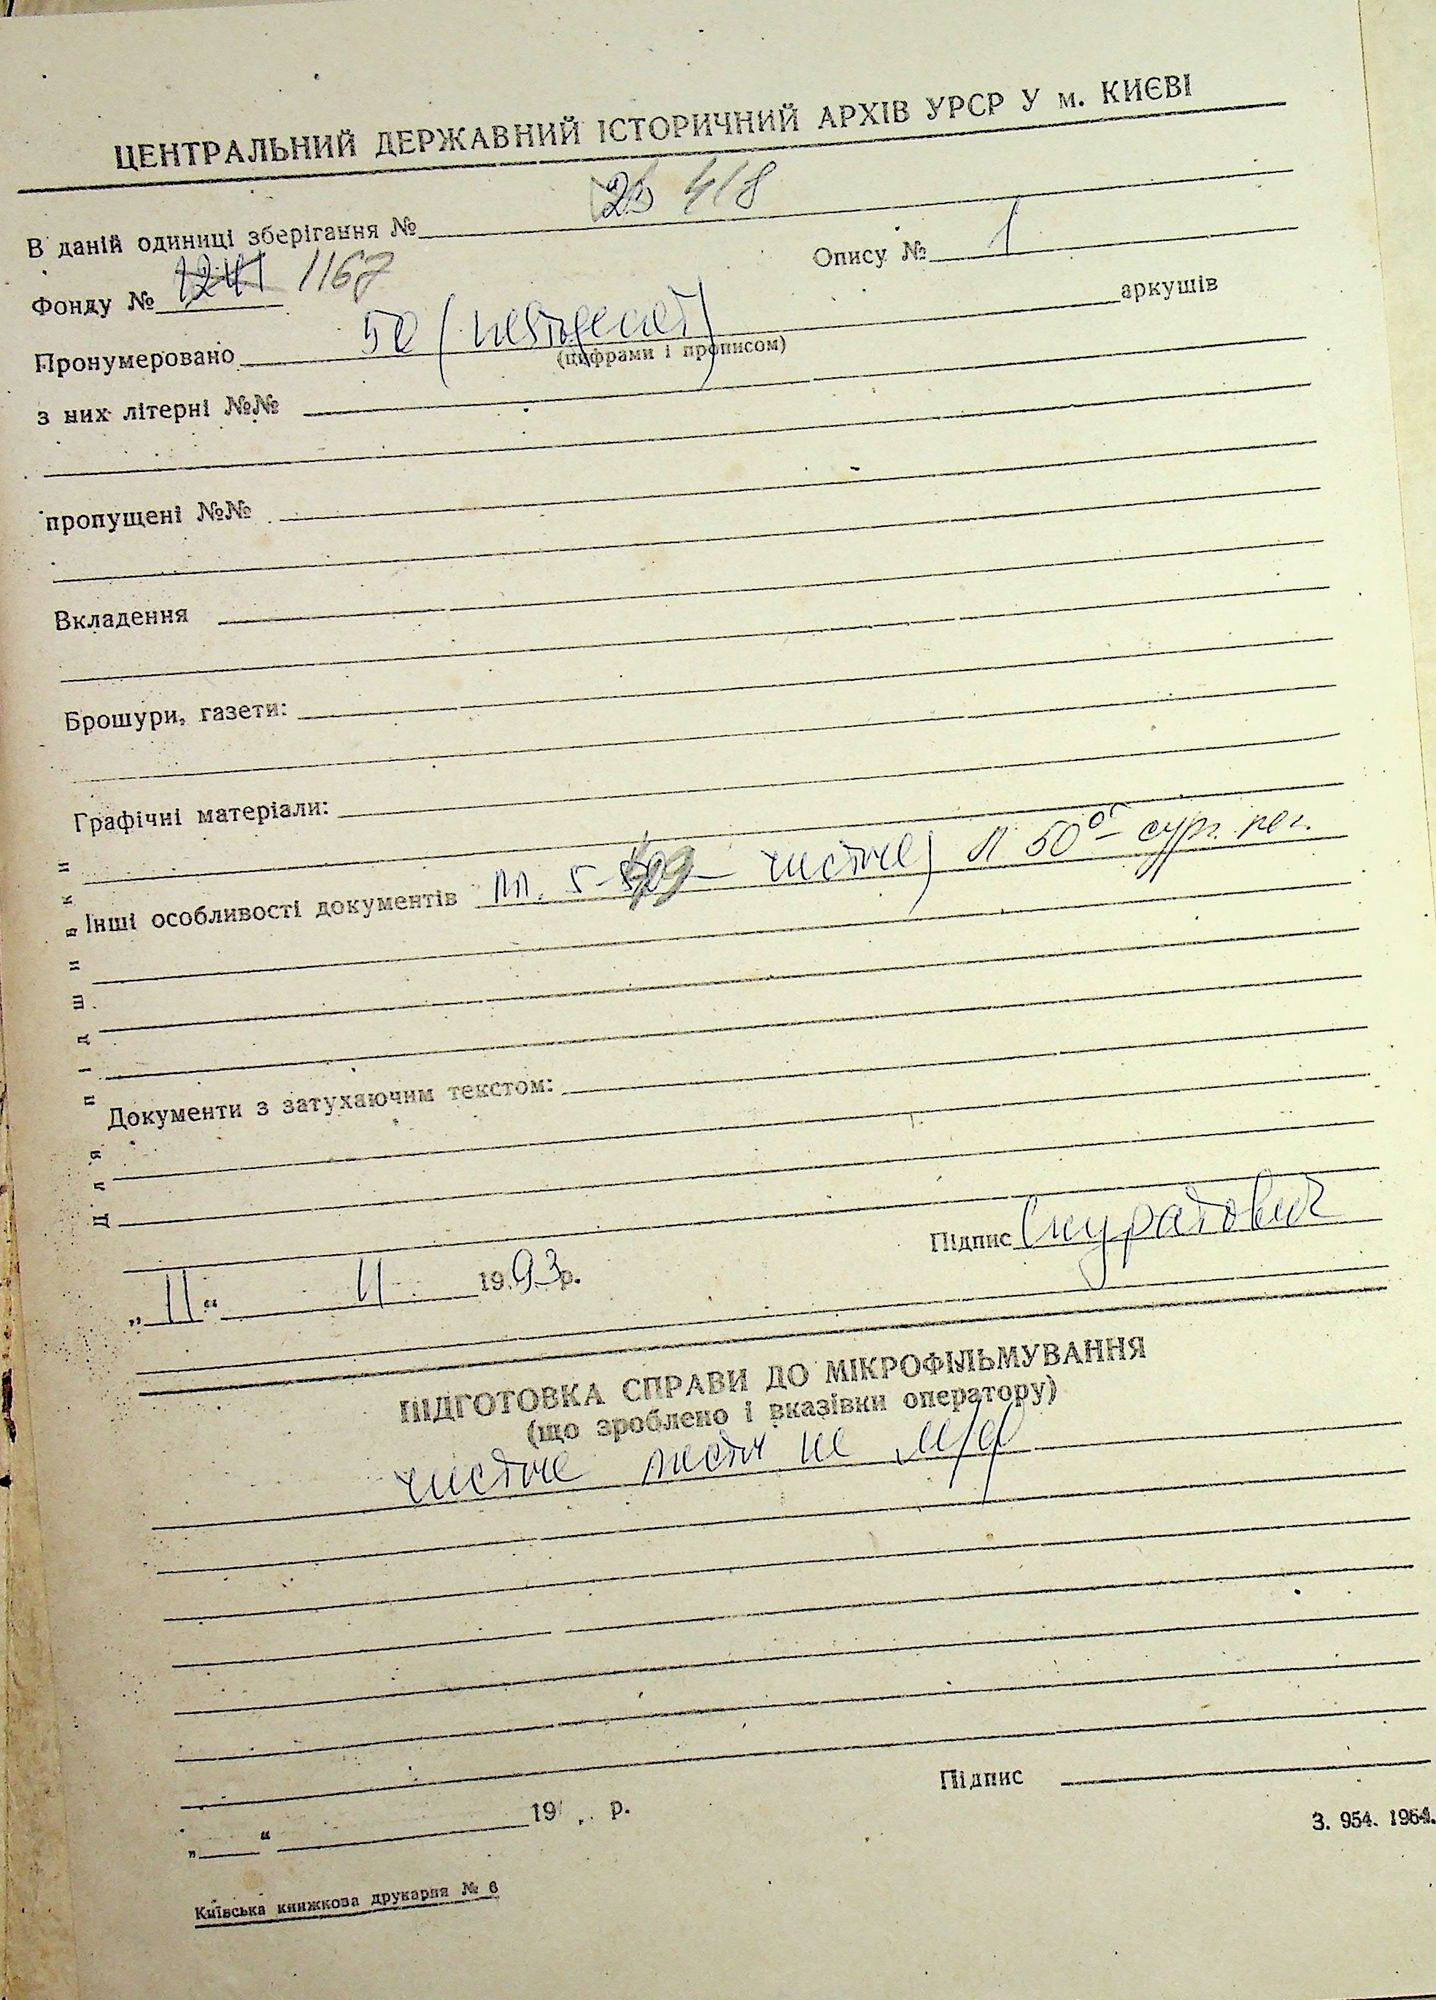 ЦЕНТРАЛЬНИЙ ДЕРЖАВНИЙ ІСТОРИЧНИЙ АРХІВ УРСР У м. КИЄВІ
В даній одиниці зберігання № 418
Опису № 1
Фонду № 1241 1167
Пронумеровано 50 ( ) аркушів
(цифрами і прописом)
з них літерні №№
пропущені №№
Вкладення
Брошури, газети:
Графічні матеріали:
Інші особливості документів лл. 5-49 – чисті, л 50 об – сург. печ.
Документи з затухаючим текстом:
Для підшивки
Підпис Скуратович
„11“ 11 1993 р.
ПІДГОТОВКА СПРАВИ ДО МІКРОФІЛЬМУВАННЯ
(що зроблено і вказівки оператору)
чистые листы не м/ф
Підпис
„ “ 19 р.
З. 954. 1964.
Київська книжкова друкарня № 6